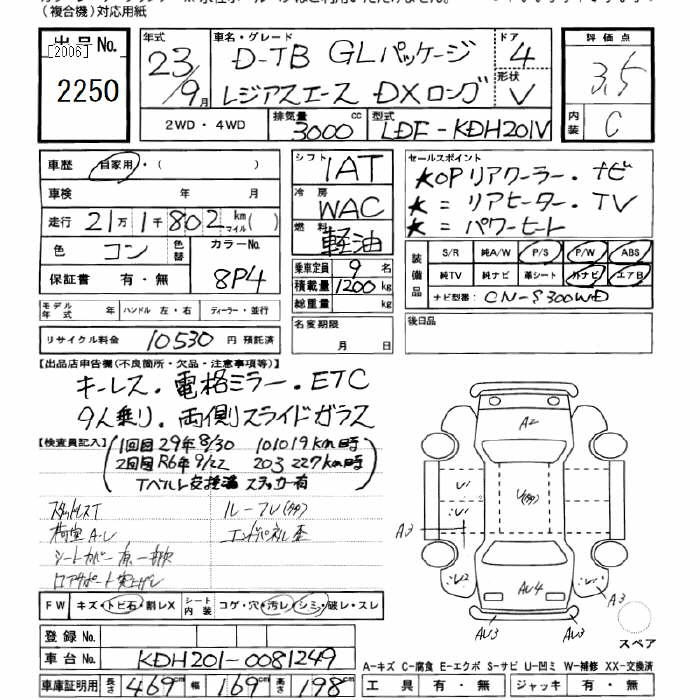 （複合機）対応用紙
出品No. [2006] 2250
年式 23/9月
車名・グレード D-TB GLパッケージ
レジアスエース DXロング
ドア 4
形状 V
2WD・4WD
排気量 3000cc
型式 LDF-KDH201V
評価点 3.5
内装 C
車歴 自家用・（ ）
車検 年 月
走行 21万1千802km マイル（ ）
色 コン 色替 カラーNo. 8P4
保証書 有・無
シフト 1AT
冷房 WAC
燃料 軽油
乗車定員 9名
積載量 1200kg
総重量 kg
セールスポイント
★OPリアクーラー・ナビ
★=リアヒーター・TV
★=パワーヒート
装備品 S/R 純A/W P/S P/W ABS
純TV 純ナビ 革シート 外ナビ エアB
ナビ型番： CN-S300WD
モデル年式 年 ハンドル 左・右 ディーラー・並行
リサイクル料金 10530円 預託済
名変期限 月 日
後日品
【出品店申告欄（不良箇所・欠品・注意事項等）】
キーレス・電格ミラー・ETC
9人乗り・両側スライドガラス
【検査員記入】
1回目 29年8/30 101019km時
2回目 R6年9/22 203227km時
Tベルト交換済 ステッカー有
スタッドレスT
荷室A-U
ルーフU（多）
エンドパネル歪
FW キズ・トビ石・割レX
シート内装 コゲ・穴・汚レ・シミ・破レ・スレ
登録No.
車台No. KDH201-0081249
車庫証明用 長さ 469cm 幅 169cm 高さ 198cm
A2
U(多)
A3
AU4
AU3
AU3
A3
スペア
A-キズ C-腐食 E-エクボ S-サビ U-凹ミ W-補修 XX-交換済
工具 有・無 ジャッキ 有・無